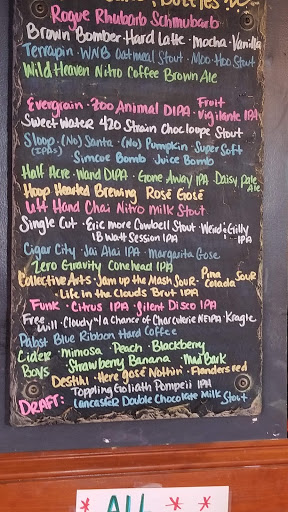 Bottles
Rogue Rhubarb Schmubarb
Brown Bomber Hard Latte · Mocha · Vanilla
Terrapin · WNB Oatmeal Stout · Moo-Hoo Stout
Wild Heaven Nitro Coffee Brown Ale
Evergrain · 700 Animal DIPA · Fruit Vigilante IPA
Sweet Water 420 Strain Chocloope Stout
Sloop · (No) Santa · (No) Pumpkin · Super Soft
(IPAs) Simcoe Bomb Juice Bomb
Half Acre · Ward DIPA · Gone Away IPA · Daisy Pale Ale
Hoop Hearted Brewing Rosé Gosé
Left Hand Chai Nitro Milk Stout
Single Cut · Eric more Cowbell Stout · Weird & Grilly IPA
18 Watt Session IPA
Cigar City · Jai Alai IPA · Margarita Gose
Zero Gravity Conehead IPA
Collective Arts · Jam up the Mash Sour · Pina Colada Sour
· Life in the Clouds Brut IPA
Funk · Citrus IPA · Silent Disco IPA
Free Will · Cloudy w/a Chance of Charcuterie NEIPA · Kragle
Pabst Blue Ribbon Hard Coffee
Cider Boys · Mimosa · Peach · Blackberry
Strawberry Banana · Mad Bark
Destihl · Here Gosé Nothin' · Flanders red
Toppling Goliath Pompeii IPA
DRAFT: Lancaster Double Chocolate Milk Stout
* ALL * *